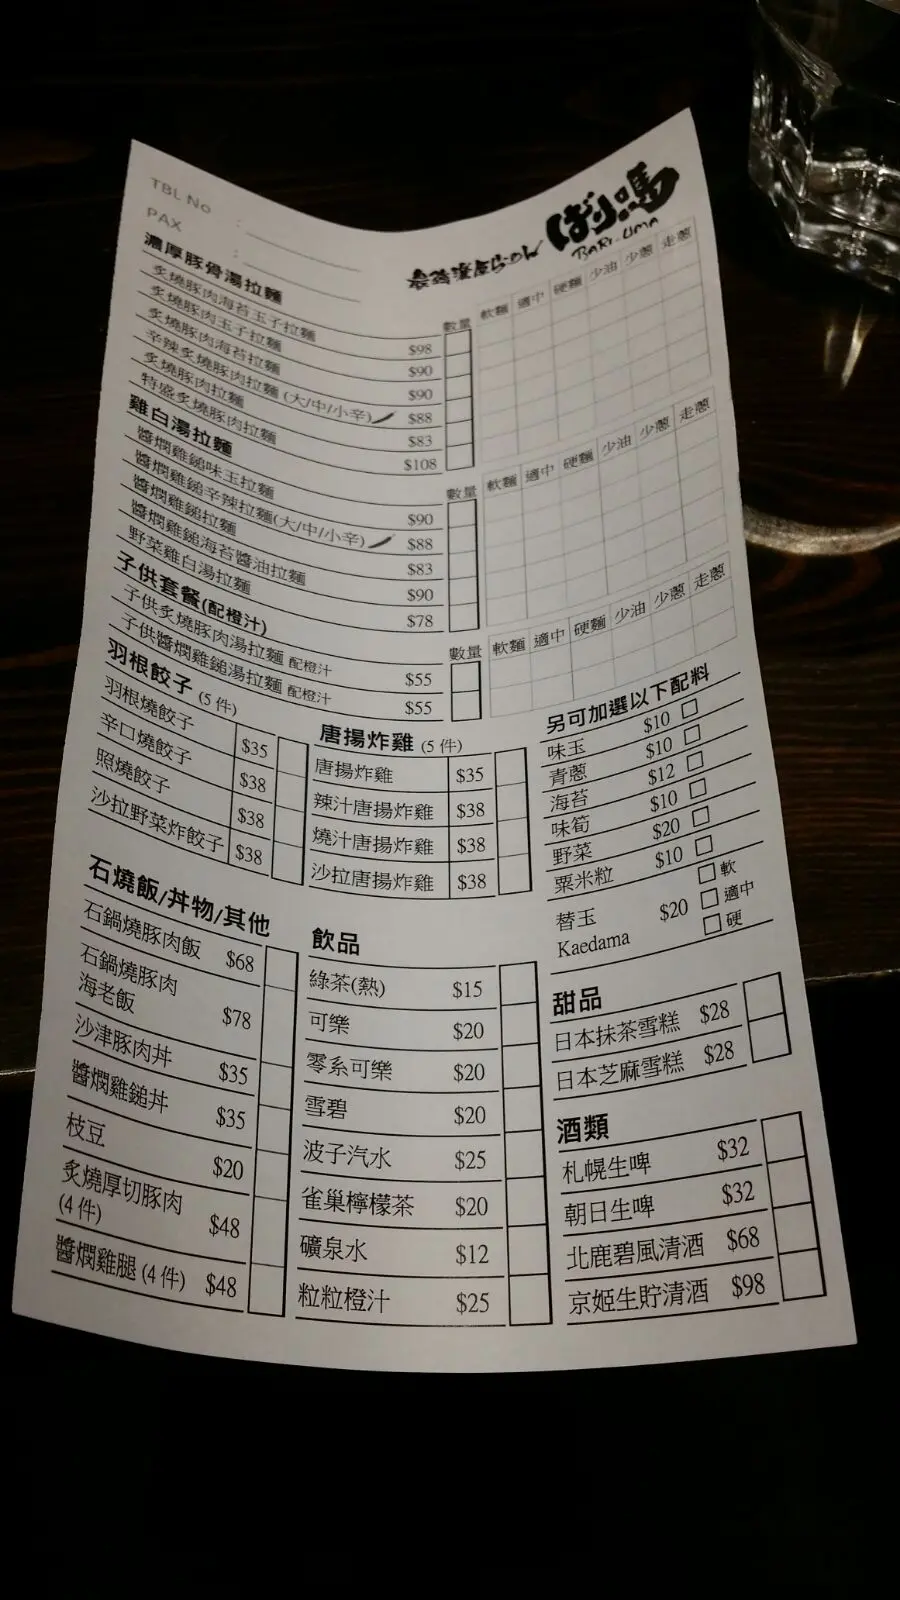 TBL No :
PAX :
ばり馬
BARI-UMA
濃厚豚骨湯拉麵 數量 軟麵 適中 硬麵 少油 少蔥 走蔥
炙燒豚肉海苔玉子拉麵 $98
炙燒豚肉玉子拉麵 $90
炙燒豚肉海苔拉麵 $90
辛辣炙燒豚肉拉麵 (大/中/小辛) $88
炙燒豚肉拉麵 $83
特盛炙燒豚肉拉麵 $108
雞白湯拉麵 數量 軟麵 適中 硬麵 少油 少蔥 走蔥
醬燜雞鎚味玉拉麵 $90
醬燜雞鎚辛辣拉麵(大/中/小辛) $88
醬燜雞鎚拉麵 $83
醬燜雞鎚海苔醬油拉麵 $90
野菜雞白湯拉麵 $78
子供套餐(配橙汁) 數量 軟麵 適中 硬麵 少油 少蔥 走蔥
子供炙燒豚肉湯拉麵 配橙汁 $55
子供醬燜雞鎚湯拉麵 配橙汁 $55
羽根餃子 (5 件)
羽根燒餃子 $35
辛口燒餃子 $38
照燒餃子 $38
沙拉野菜炸餃子 $38
唐揚炸雞 (5 件)
唐揚炸雞 $35
辣汁唐揚炸雞 $38
燒汁唐揚炸雞 $38
沙拉唐揚炸雞 $38
另可加選以下配料
味玉 $10
青蔥 $10
海苔 $12
味筍 $10
野菜 $20
粟米粒 $10
替玉 $20 軟
適中
Kaedama 硬
石燒飯/丼物/其他
石鍋燒豚肉飯 $68
石鍋燒豚肉
海老飯 $78
沙津豚肉丼 $35
醬燜雞鎚丼 $35
枝豆 $20
炙燒厚切豚肉
(4 件) $48
醬燜雞腿 (4 件) $48
飲品
綠茶(熱) $15
可樂 $20
零系可樂 $20
雪碧 $20
波子汽水 $25
雀巢檸檬茶 $20
礦泉水 $12
粒粒橙汁 $25
甜品
日本抹茶雪糕 $28
日本芝麻雪糕 $28
酒類
札幌生啤 $32
朝日生啤 $32
北鹿碧風清酒 $68
京姬生貯清酒 $98